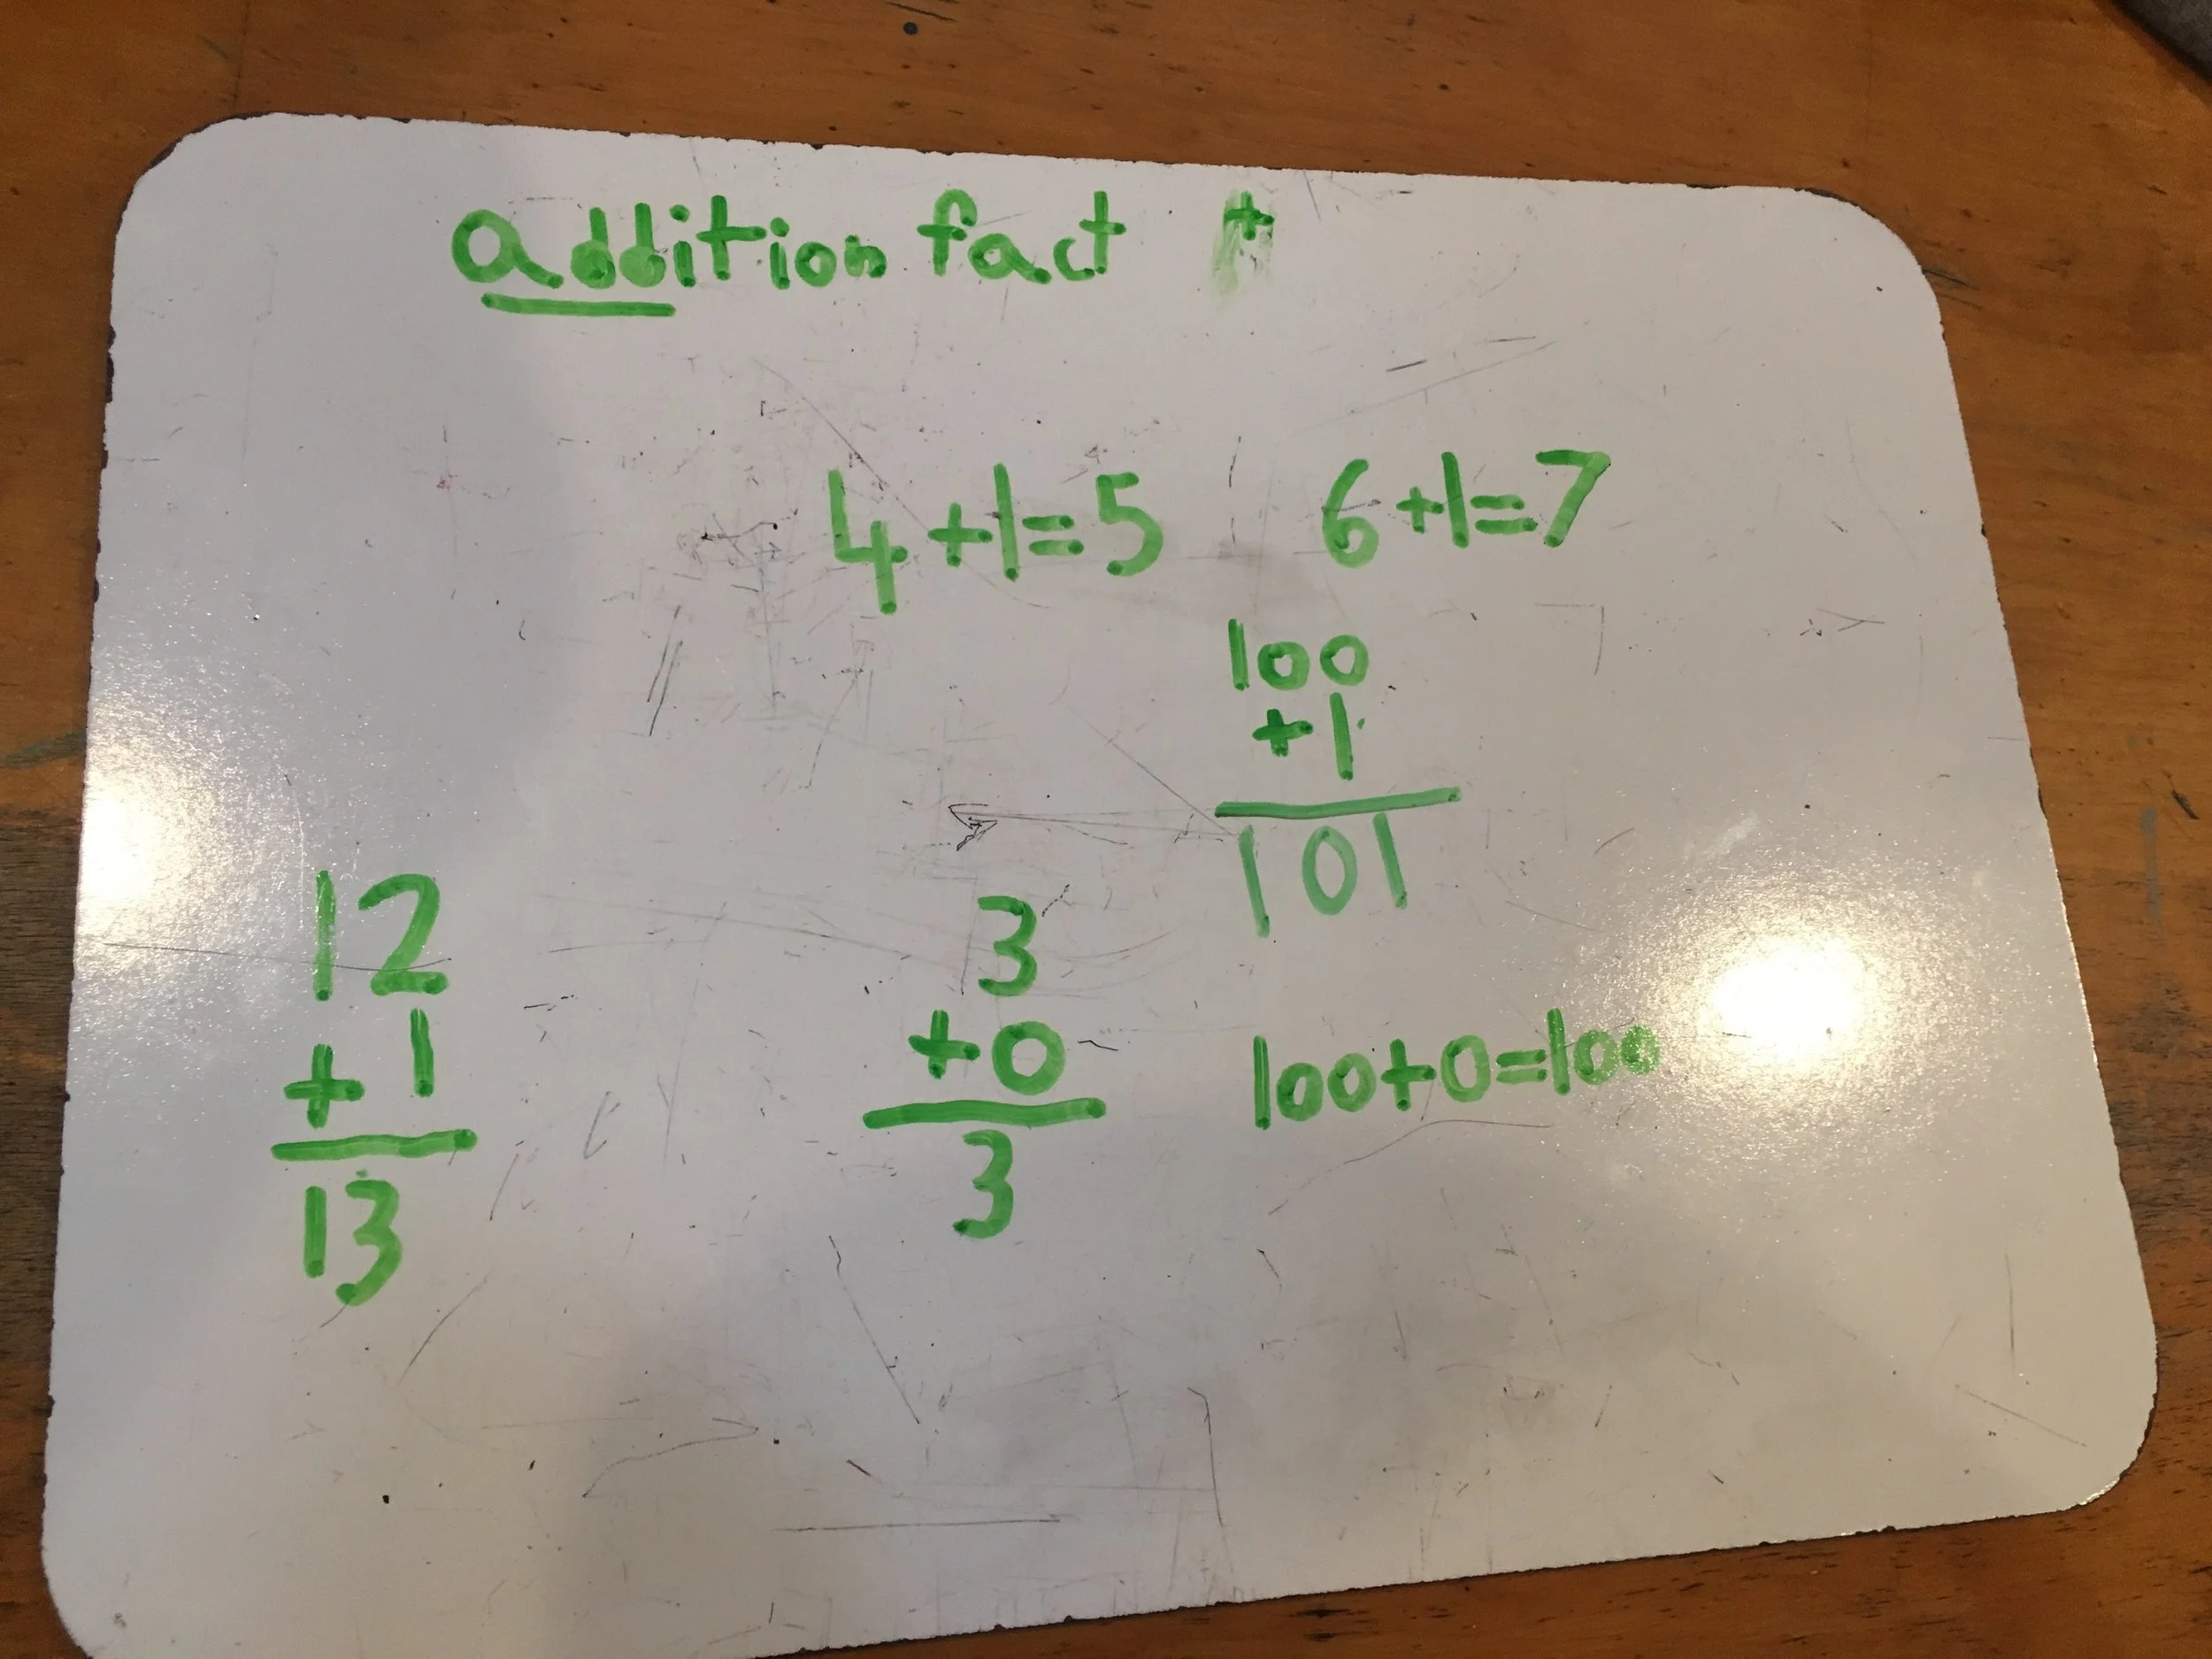 addition fact +
4+1=5
6+1=7
100
+1
101
12
+1
13
3
+0
3
100+0=100